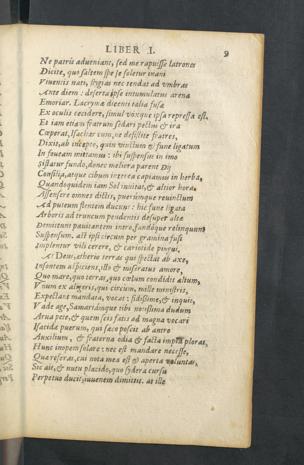 LIBER I. 9
Ne patris adveniant, sed me rapuisse latrones
Dicite, quo saltem spe se soletur inani
Viventis nati, stygias nec tendat ad umbras
Ante diem: deserta ipse intumulatus arena
Emoriar. Lacrymæ dicentis talia fusæ
Ex oculis cecidere, simul vox que ipsa repressa est,
Et iam etiam fratrum sedari pectus & ira
Cœperat, Isachar cum, ne desistite fratres,
Dixit, ab incepto, quin vinctum & fune ligatum
In foveam mittamus: ibi suspensus in imo
Sistatur fundo, donec meliora parent Dij
Consilia, atque cibum interea capiamus in herba,
Quandoquidem iam Sol invitat, & altior hora.
Assensere omnes dictis, puerumque revinctum
Ad puteum flentem ducunt: hic fune ligata
Arboris ad truncum pendentis desuper altæ
Demittunt pavitantem intro, fandoque relinquunt
Suspensum, ast ipsi circum per gramina fusi
Implentur vili cerere, & cariotide pingui.
At Deus, ætherio terras qui spectat ab axe,
Insontem aspiciens, isto & miseratus amore,
Quo mare, quo terras, quo cœlum condidit altum,
Vnum ex aligeris, qui circum, mille ministris,
Expectant mandata, vocat: fidissime, & inquit,
Vade age, Samaritidum que tibi notissima dudum
Arva pete, & quem scis fatis ad magna vocari
Isacida puerum, qui saxo poscit ab antro
Auxilium, & fraterna odia & facta impia plorat,
Hunc inopem solare: nec est mandare necesse,
Quæ referas, cui nota mea est & aperta voluntas.
Sic ait, & nutu placido, quo sydera cursu
Perpetuo ducit, iuvenem dimittit. at ille